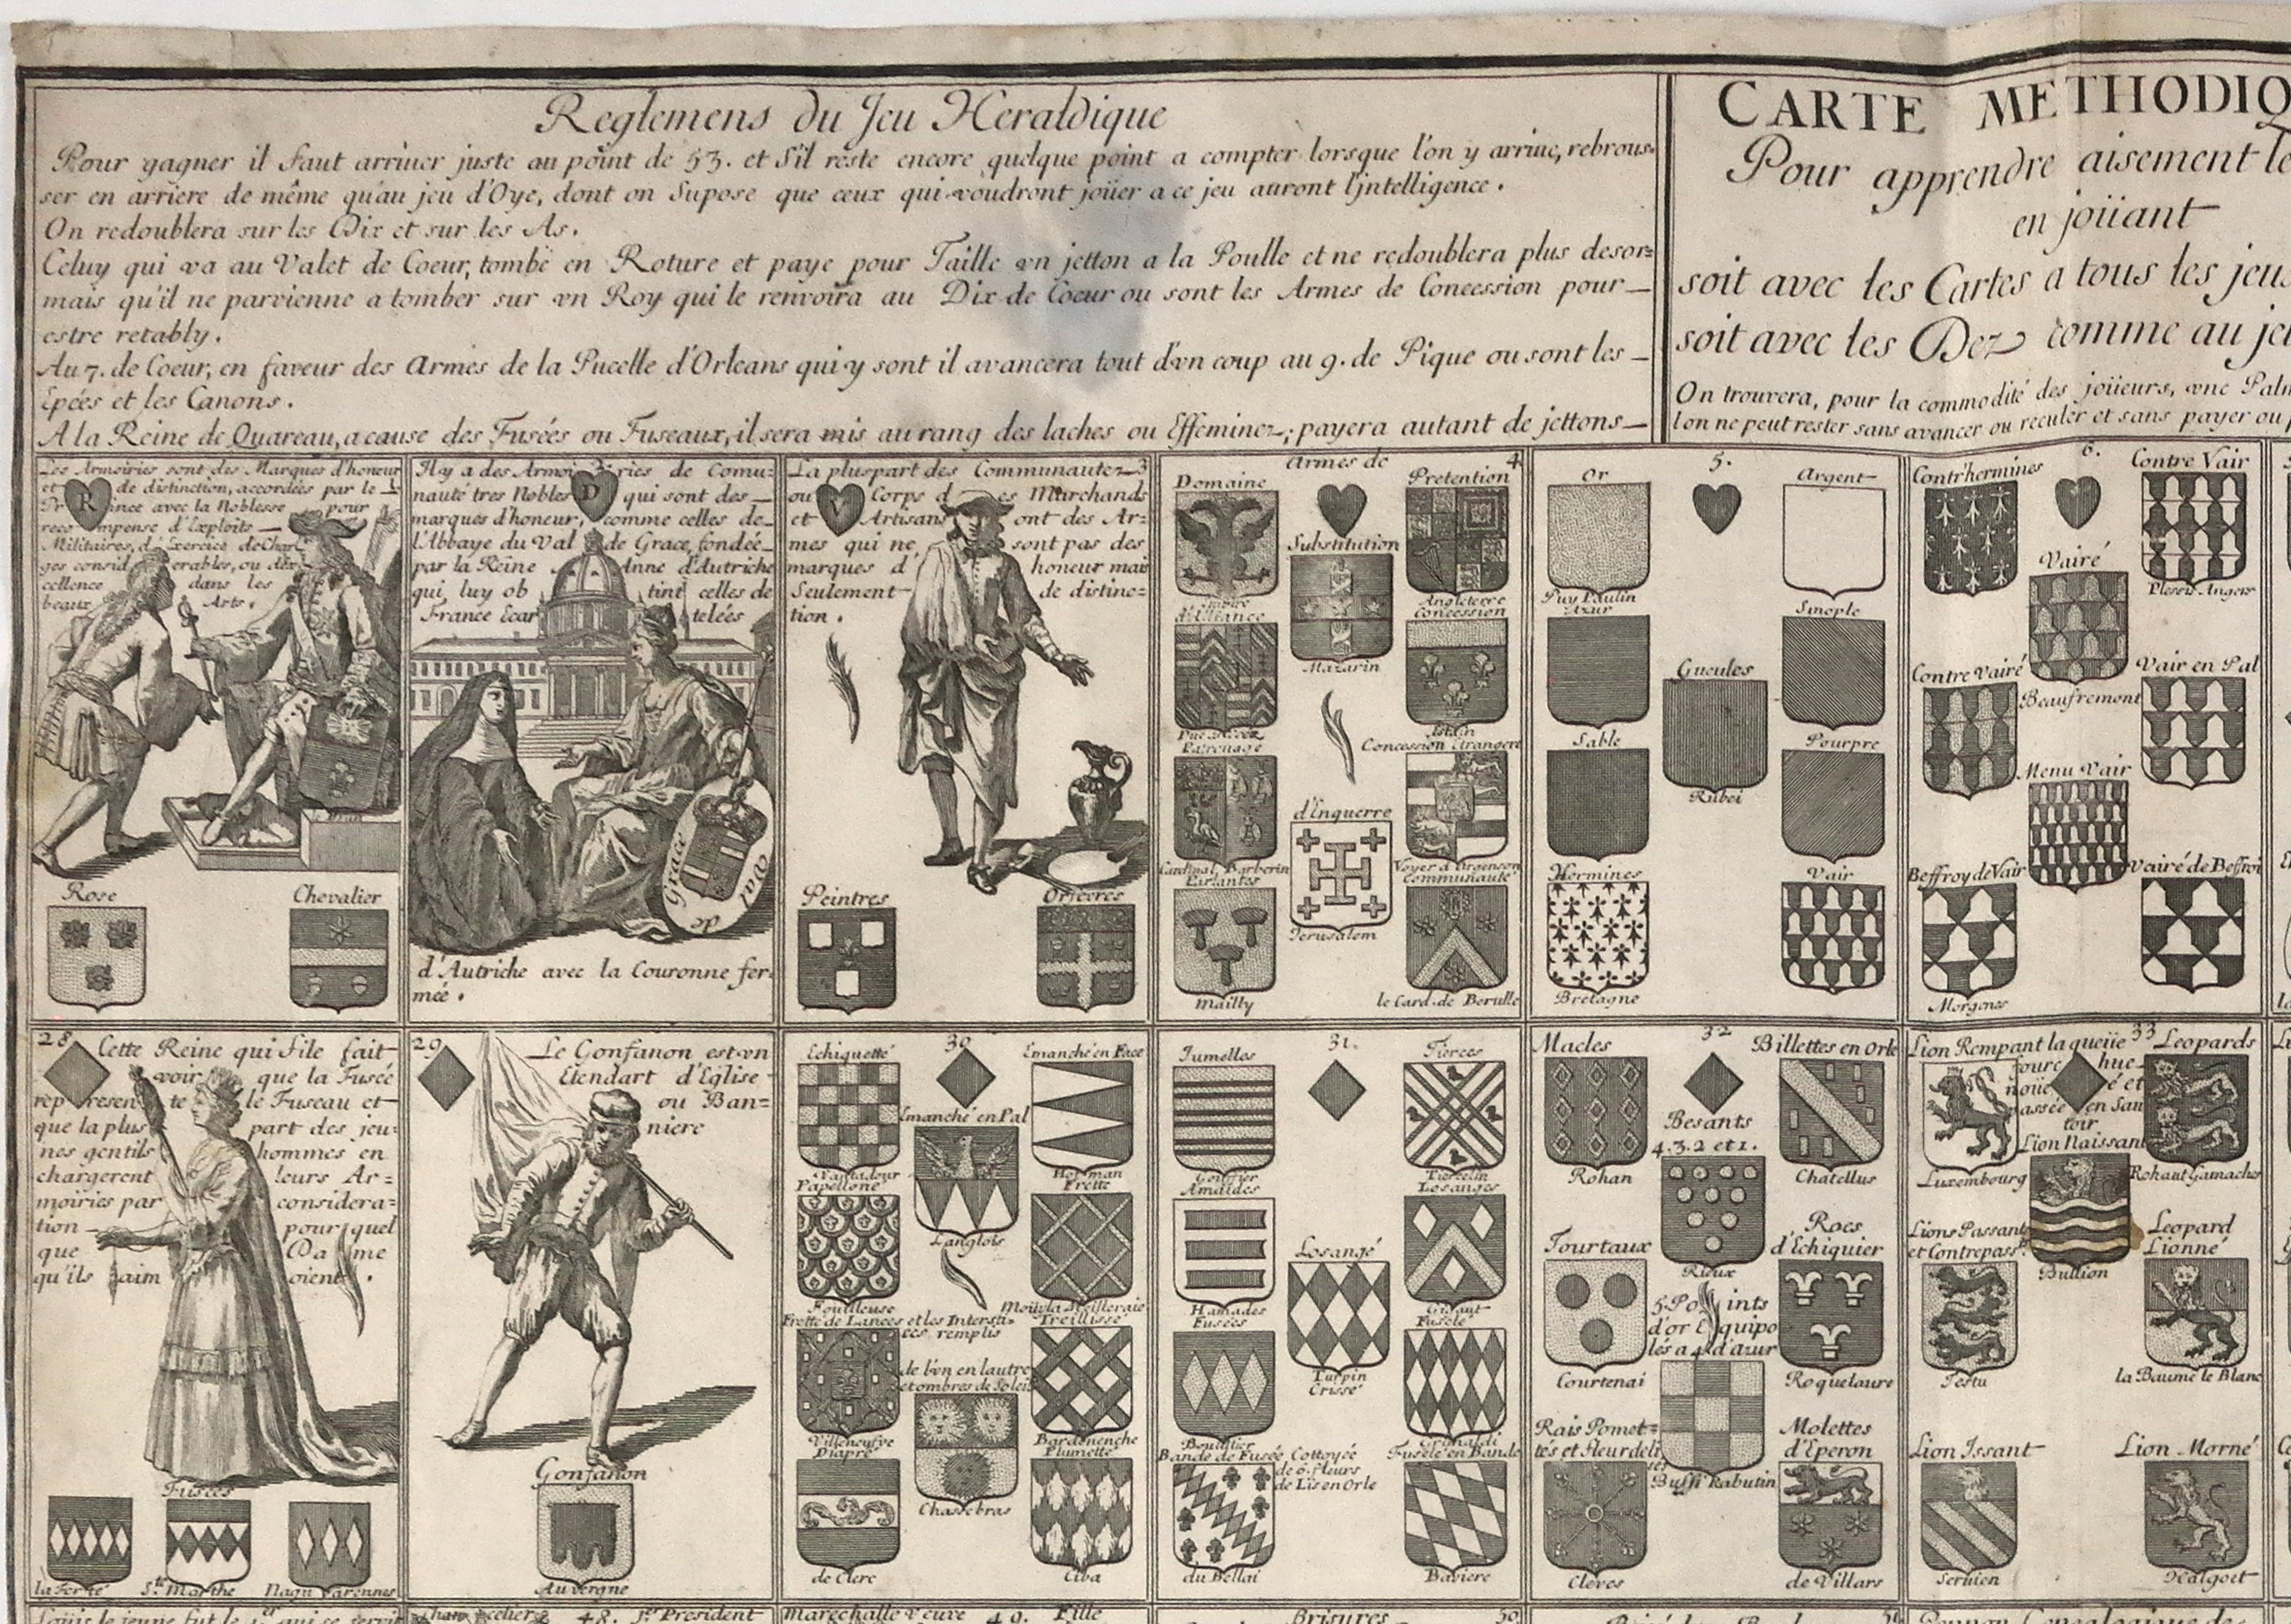 Reglemens du Jeu Heraldique
Pour gagner il faut arriuer juste au point de 53. et s'il reste encore quelque point a compter lorsque l'on y arriue, rebrous=
ser en arriere de même qu'au jeu d'Oye, dont on Supose que ceux qui voudront joüer a ce jeu auront l'jntelligence.
On redoublera sur les Dix et sur les As.
Celuy qui va au Valet de Coeur, tombe en Roture et paye pour Taille vn jetton a la Poulle et ne redoublera plus desor=
mais qu'il ne parvienne a tomber sur vn Roy qui le renvoira au Dix de Coeur ou sont les Armes de Concession pour
estre retably.
Au 7. de Coeur, en faveur des Armes de la Pucelle d'Orleans qui y sont il avancera tout d'vn coup au 9. de Pique ou sont les
Epées et les Canons.
A la Reine de Quareau, a cause des Fusées ou Fuseaux, il sera mis au rang des laches ou Effeminez; payera autant de jettons
CARTE METHODIQ
Pour apprendre aisement le
en joüant
soit avec les Cartes a tous les jeux
soit avec les Dez comme au jeu
On trouvera, pour la commodité des joüeurs, vne Palm
l'on ne peut rester sans avancer ou reculer et sans payer ou
Les Armoiries sont des Marques d'honeur
et R de distinction, accordées par le 1
Prince avec la Noblesse pour
recompense d'Exploits
Militaires, d'Exercice de Char
ges considerables, ou d'ex
cellence dans les
beaux Arts.
le Brun
Rose
Chevalier
Il y a des Armoiries de Comu=
nauté tres Nobles D qui sont des
marques d'honeur, comme celles de
l'Abbaye du Val de Grace, fondée
par la Reine Anne d'Autriche
qui luy obtint celles de
France Ecartelées
Grace
Val
de
d'Autriche avec la Couronne fer
meé.
La pluspart des Communautez 3
ou V Corps des Marchands
et Artisans ont des Ar=
mes qui ne sont pas des
marques d'honeur mais
Seulement de distinc=
tion.
Peintres
Orfevres
Armes de
4
Domaine
Pretention
Substitution
Empire
d'Alliance
Angleterre
Concession
Mazarin
Patronage
Concession étrangere
d'Enquerre
Cardinal Barberin
Parlantes
Voyer d'Argenson
Communauté
Jerusalem
Mailly
le Card. de Berulle
5.
Or
Argent
Puy Paulin
Azur
Sinople
Gueules
Sable
Pourpre
Rubei
Hermines
Vair
Bretagne
6.
Contr'hermines
Contre Vair
Vairé
Plessis Angers
Contre Vairé
Vair en Pal
Beaufremont
Menu Vair
Beffroy de Vair
Vairé de Beffroi
Morgones
28
Cette Reine qui file fait
voir que la Fusée
represente le Fuseau et
que la plus part des jeu=
nes gentils hommes en
chargerent leurs Ar=
moiries par considera=
tion pour quel
que Dame
qu'ils aimoient.
Fusées
la Ferté
S.te Marthe
Nagu Varennes
29
Le Gonfanon est vn
Etendart d'Eglise
ou Ban=
niere
Gonfanon
Auvergne
30
Echiqueté
Emanché en Face
Emanché en Pal
Vantadour
Papelloné
Herman
Fretté
Langlois
Fouilleuse
Fretté de Lances et les Intersti=
ces remplis
Treillissé
de l'vn en l'autre
et ombres de Soleil
Villeneufve
Diapré
Bardonenche
Plumetté
Chassebras
de Clerc
Ciba
31.
Jumelles
Tierces
Gouffier
Amaides
Tiercelin
Losanges
Losangé
Hamades
Fusées
Gigaut
Fuselé
Turpin
Crissé
Bouthier
Grimaldi
Bande de Fusée Cottoyée
de 6. fleurs
de Lis en Orle
Fuselé en Bande
du Bellai
Baviere
32
Macles
Billettes en Orle
Besants
4.3.2 et 1.
Rohan
Chatellus
Tourtaux
Rocs
d'Echiquier
Rieux
5 Points
d'or Equipo
lés a 4 d'azur
Courtenai
Roquelaure
Rais Pomet=
tés et fleurdeli
sés
Molettes
d'Eperon
Bussi Rabutin
Cleves
de Villars
33
Lion Rempant la queüe
fourchue
noüeé et
passée en Sau
toir
Leopards
Lion Naissant
Luxembourg
Rohaut Gamaches
Lions Passants
et Contrepass.
Leopard
Lionné
Bullion
Testu
la Baume le Blanc
Lion Issant
Lion Morné
Servien
Halgoet
Loüis le jeune fut le 1.er qui se servit
48. P. President
Marechalle Veuve 49. Fille
Brisures 50